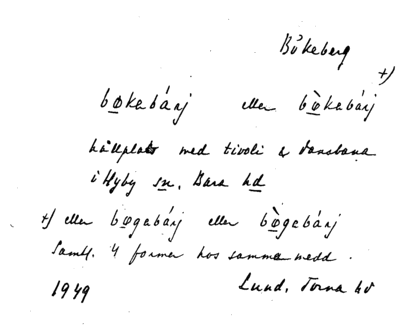 Bökeberg
+)
bo̲kabánj eller bò̲kabánj
hållplats med tivoli & dansbana
i Hyby sn, Bara hd
+) eller bo̲gabánj eller bò̲gabánj
Samtl. 4 former hos samma medd.
1949 Lund, Torna hd